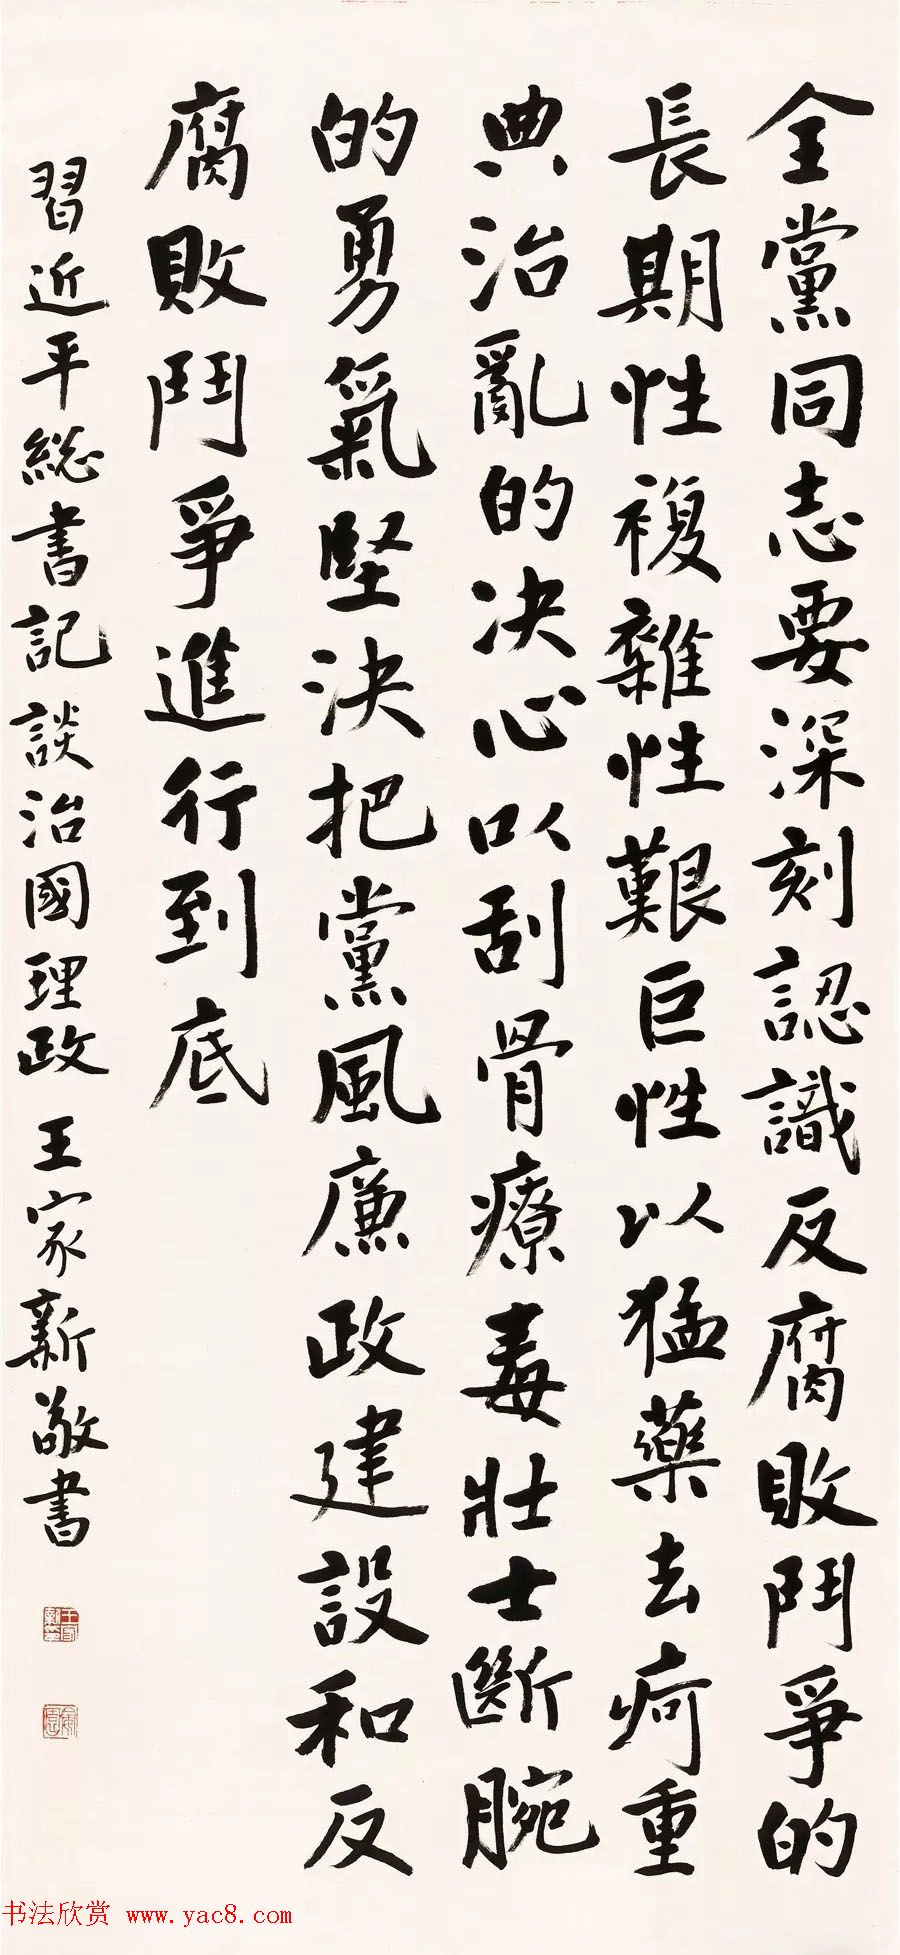 全黨同志要深刻認識反腐敗鬥爭的
長期性複雜性艱巨性以猛藥去疴重
典治亂的决心以刮骨療毒壯士斷腕
的勇氣堅決把黨風廉政建設和反
腐敗鬥爭進行到底
習近平総書記談治國理政 王家新敬書
王家新華
书法欣赏 www.yac8.com